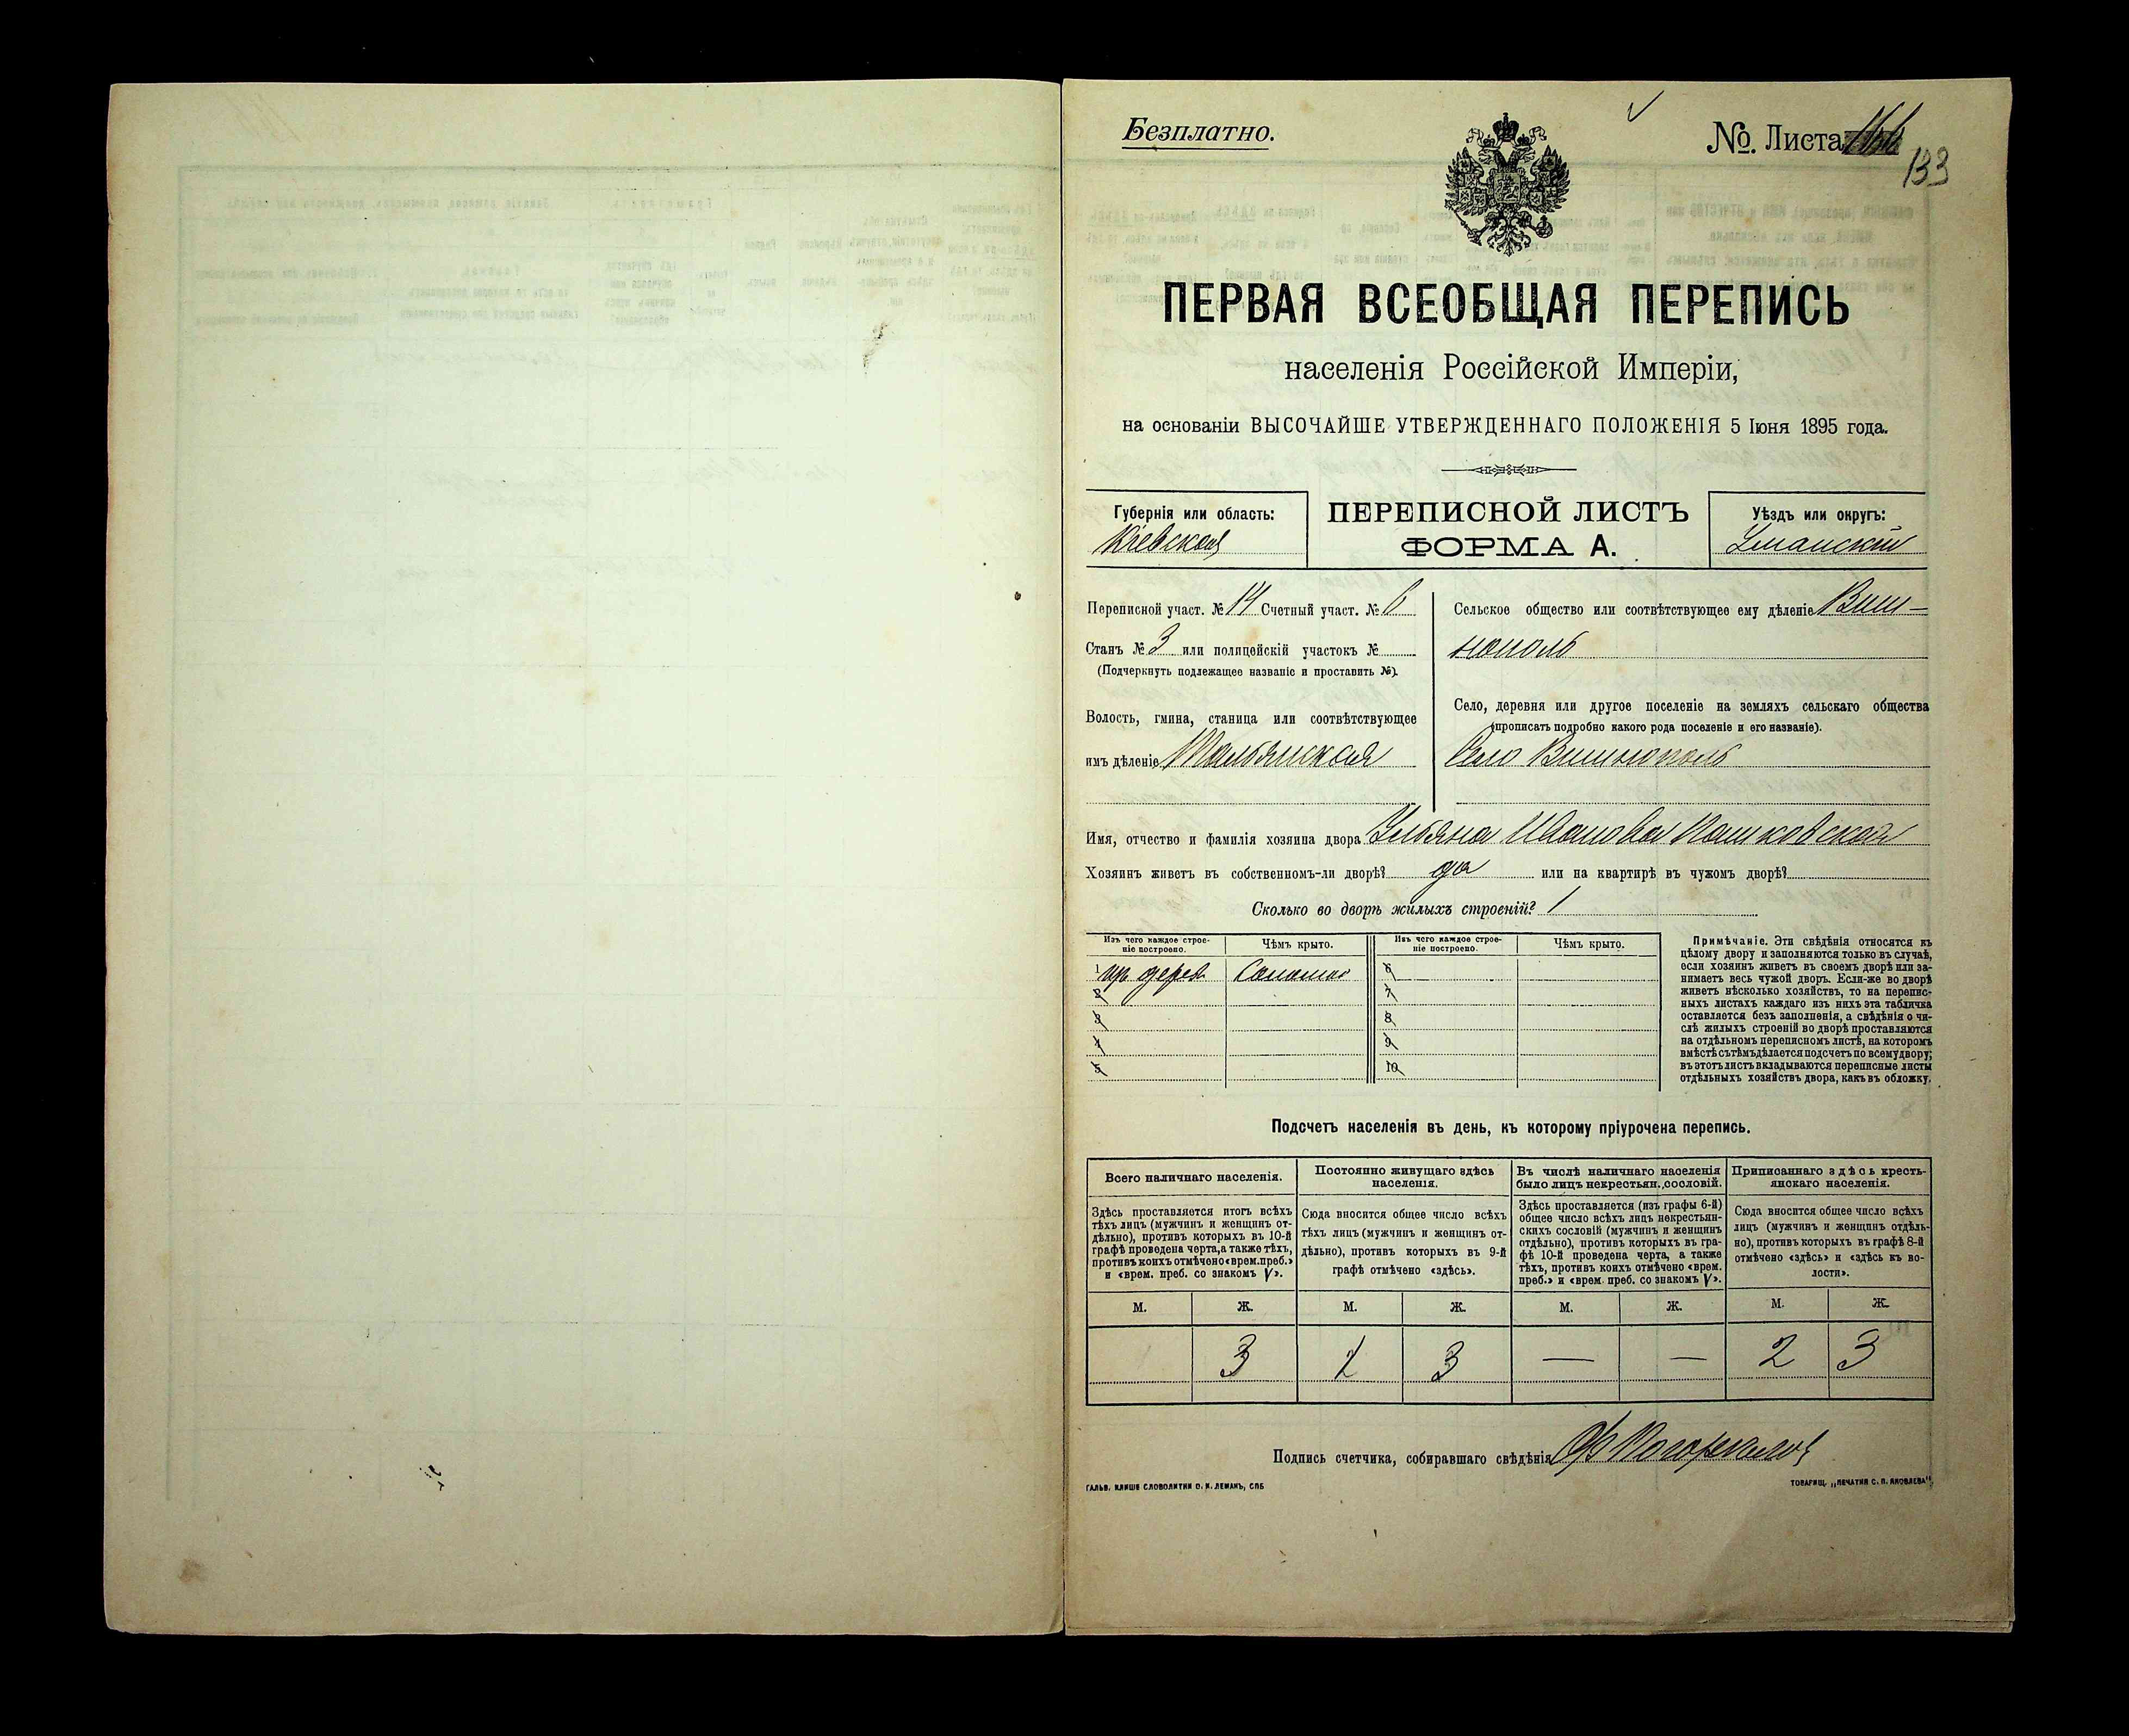 Безплатно.
№. Листа
133
ПЕРВАЯ ВСЕОБЩАЯ ПЕРЕПИСЬ
населенія Россійской Имперіи,
на основаніи ВЫСОЧАЙШЕ УТВЕРЖДЕННАГО ПОЛОЖЕНІЯ 5 Іюня 1895 года.
Губернія или область:
Кіевская
ПЕРЕПИСНОЙ ЛИСТЪ
ФОРМА А.
Уѣздъ или округъ:
Уманскій
Переписной участ. № 14 Счетный участ. № 6
Станъ № 3 или полицейскій участокъ №
(Подчеркнуть подлежащее названіе и проставить №).
Волость, гмина, станица или соотвѣтствующее
имъ дѣленіе Тальянская
Сельское общество или соотвѣтствующее ему дѣленіе Виш-
нополь
Село, деревня или другое поселеніе на земляхъ сельскаго общества
(прописать подробно какого рода поселеніе и его названіе).
Село Вишнополь
Имя, отчество и фамилія хозяина двора Ульяна Иванова Пашковская
Хозяинъ живетъ въ собственномъ-ли дворѣ? да или на квартирѣ въ чужомъ дворѣ?
Сколько во дворѣ жилыхъ строеній? 1
Изъ чего каждое строе-
ніе построено.
Чѣмъ крыто.
Изъ чего каждое строе-
ніе построено.
Чѣмъ крыто.
1 изъ дерев Солом
6
2
7
3
8
4
9
5
10
Примѣчаніе. Эти свѣдѣнія относятся къ
цѣлому двору и заполняются только въ случаѣ,
если хозяинъ живетъ въ своемъ дворѣ или за-
нимаетъ весь чужой дворъ. Если-же во дворѣ
живетъ нѣсколько хозяйствъ, то на перепис-
ныхъ листахъ каждаго изъ нихъ эта табличка
оставляется безъ заполненія, а свѣдѣнія о чи-
слѣ жилыхъ строеній во дворѣ проставляются
на отдѣльномъ переписномъ листѣ, на которомъ
вмѣстѣ съ тѣмъ дѣлается подсчетъ по всему двору;
въ этотъ листъ вкладываются переписные листы
отдѣльныхъ хозяйствъ двора, какъ въ обложку.
Подсчетъ населенія въ день, къ которому пріурочена перепись.
Всего наличнаго населенія.
Здѣсь проставляется итогъ всѣхъ
тѣхъ лицъ (мужчинъ и женщинъ от-
дѣльно), противъ которыхъ въ 10-й
графѣ проведена черта, а также тѣхъ,
противъ коихъ отмѣчено «врем. преб.»
и «врем. преб. со знакомъ V».
Постоянно живущаго здѣсь
населенія.
Сюда вносится общее число всѣхъ
тѣхъ лицъ (мужчинъ и женщинъ от-
дѣльно), противъ которыхъ въ 9-й
графѣ отмѣчено «здѣсь».
Въ числѣ наличнаго населенія
было лицъ некрестьян. сословій.
Здѣсь проставляется (изъ графы 6-й)
общее число всѣхъ лицъ некрестьян-
скихъ сословій (мужчинъ и женщинъ
отдѣльно), противъ которыхъ въ гра-
фѣ 10-й проведена черта, а также
тѣхъ, противъ коихъ отмѣчено «врем.
преб.» и «врем. преб. со знакомъ V».
Приписаннаго здѣсь кресть-
янскаго населенія.
Сюда вносится общее число всѣхъ
лицъ (мужчинъ и женщинъ отдѣль-
но), противъ которыхъ въ графѣ 8-й
отмѣчено «здѣсь» и «здѣсь къ во-
лости».
М. Ж. М. Ж. М. Ж. М. Ж.
3 1 3 — — 2 3
Подпись счетчика, собиравшаго свѣдѣнія
ГАЛЬВ. КЛИШЕ СЛОВОЛИТНИ О. И. ЛЕМАНЪ, СПБ
ТОВАРИЩ. „ПЕЧАТНЯ С. П. ЯКОВЛЕВА"